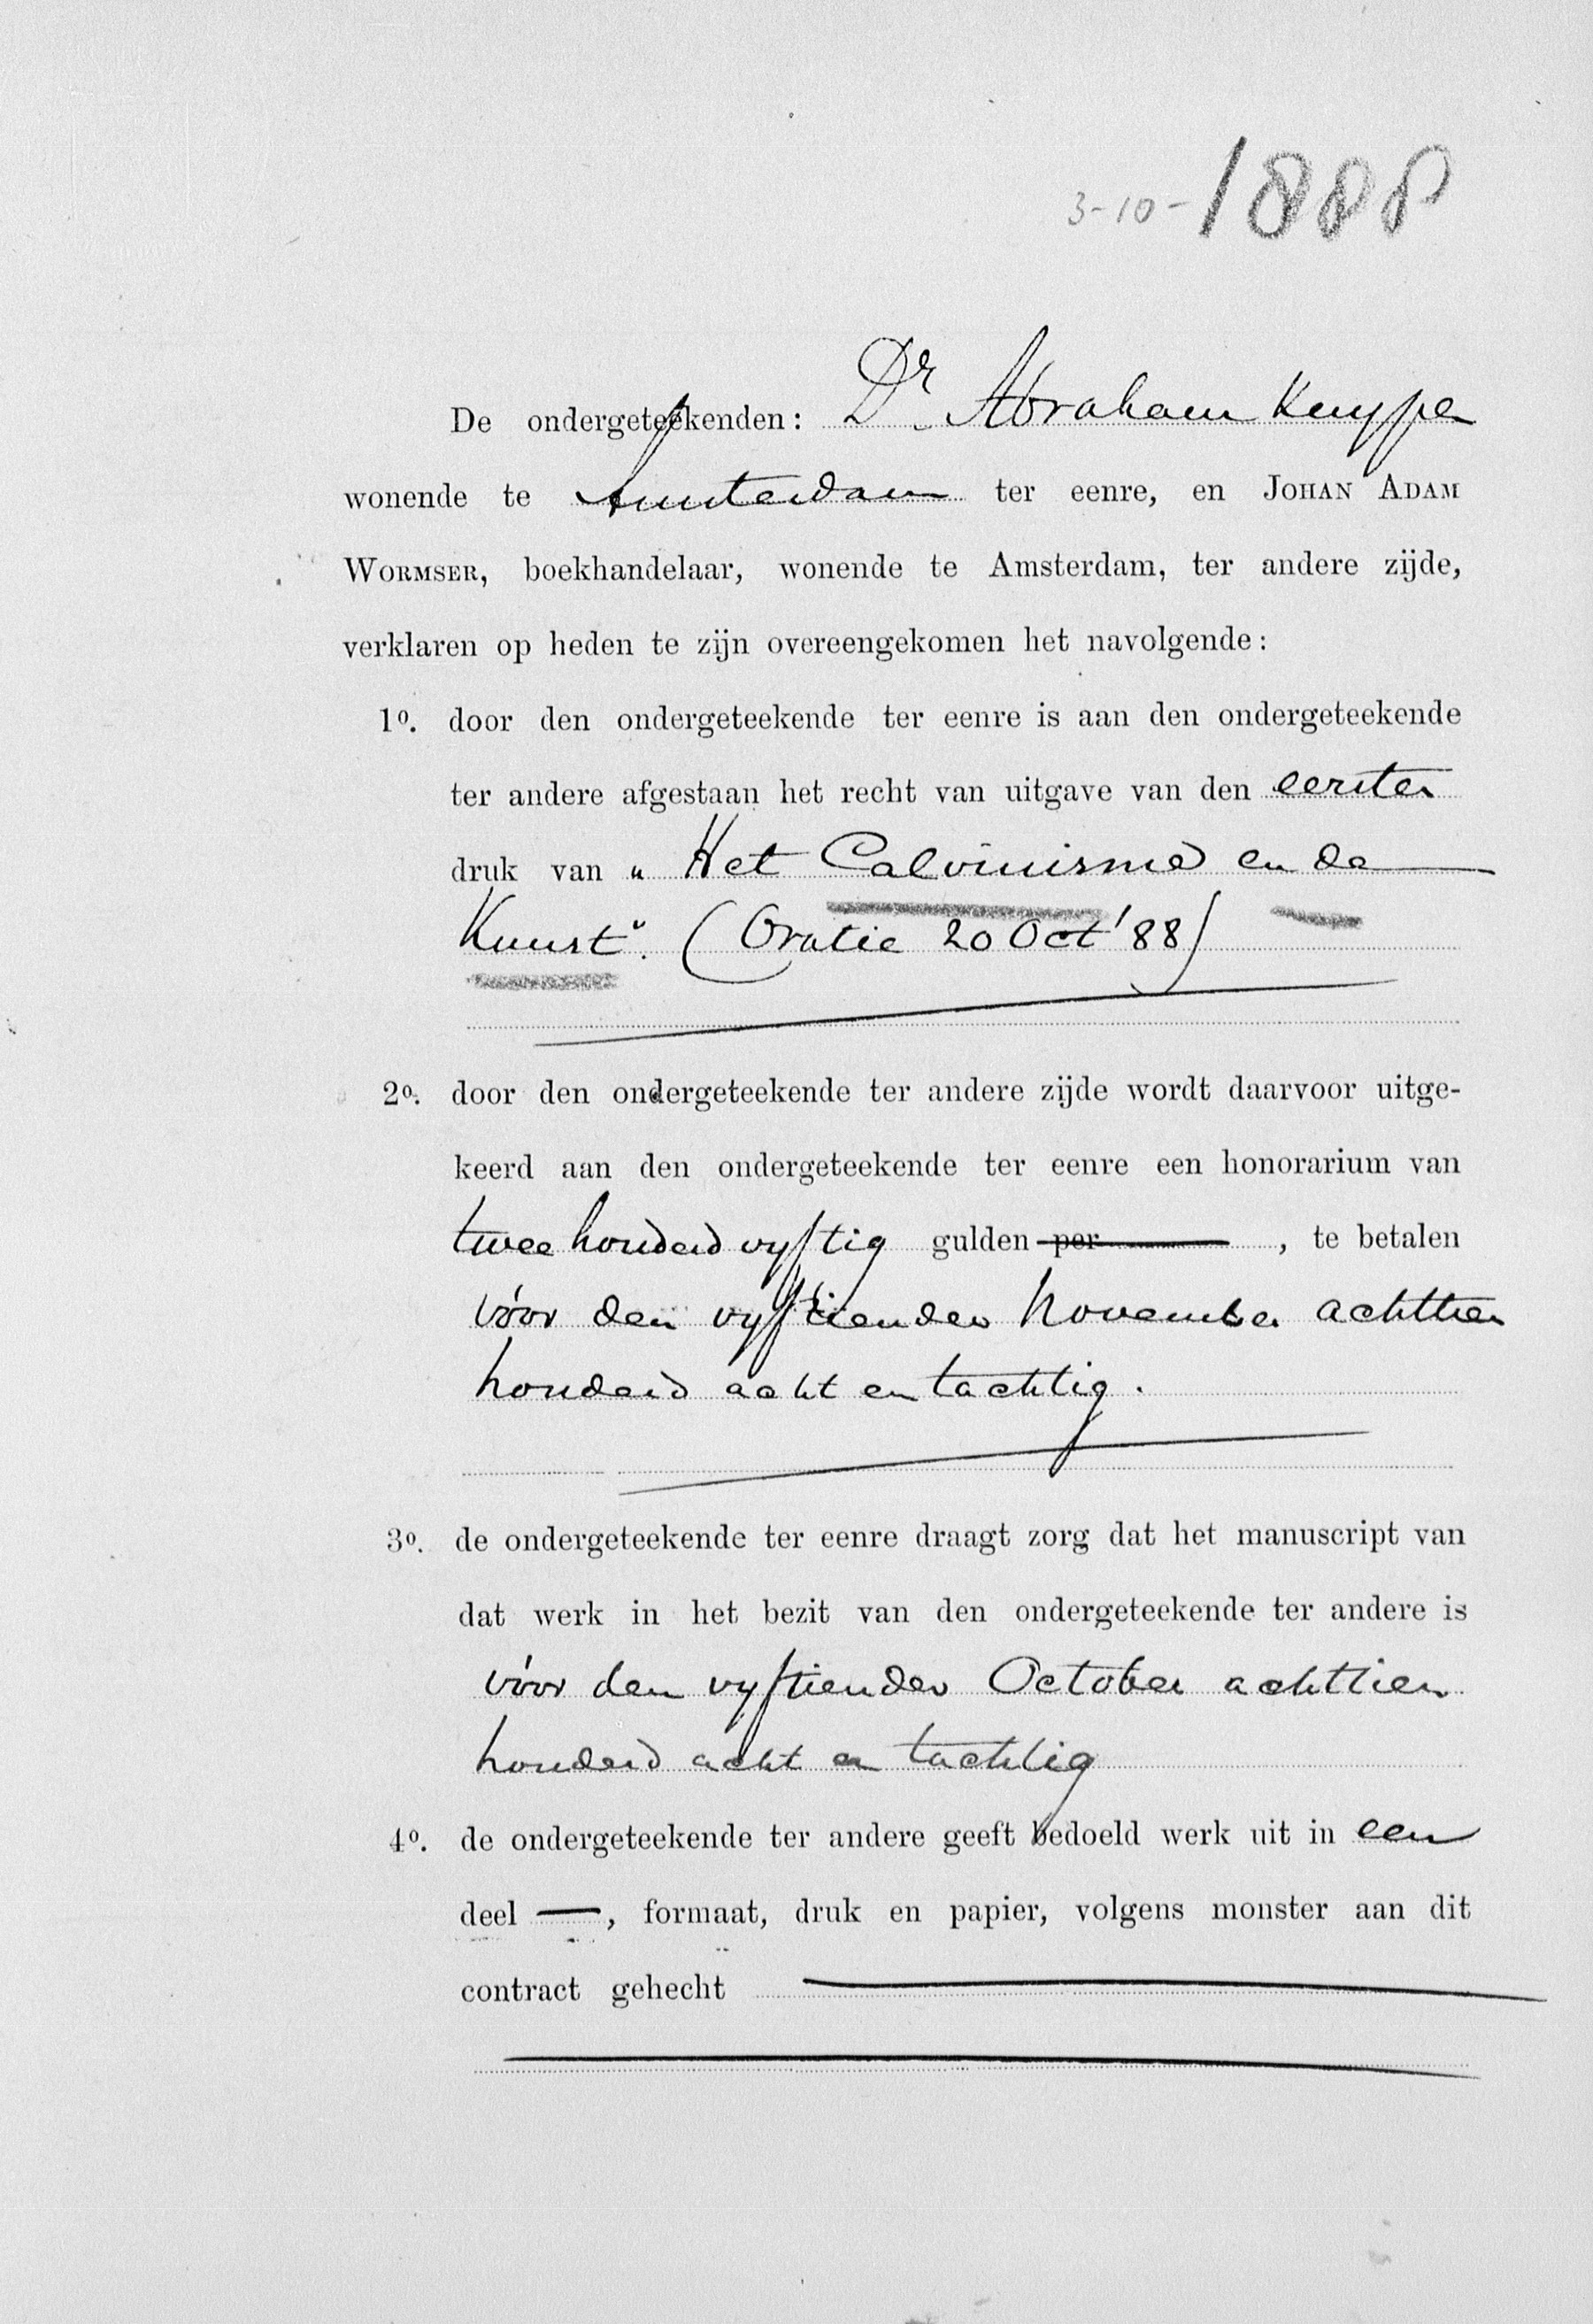 3-10-1888
De ondergeteekenden: Dr. Abraham Kuyper
wonende te Amsterdam ter eenre, en Johan Adam
Wormser, boekhandelaar, wonende te Amsterdam, ter andere zijde,
verklaren op heden te zijn overeengekomen het navolgende:
1o. door den ondergeteekende ter eenre is aan den ondergeteekende
ter andere afgestaan het recht van uitgave van den eersten
druk van „ Het Calvinisme en de
Kunst“. (Oratie 20 Oct '88)
2o. door den ondergeteekende ter andere zijde wordt daarvoor uitge-
keerd aan den ondergeteekende ter eenre een honorarium van
twee honderd vyftig gulden per , te betalen
vóor den vyftienden November achttien
honderd acht en tachtig.
3o. de ondergeteekende ter eenre draagt zorg dat het manuscript van
dat werk in het bezit van den ondergeteekende ter andere is
vóor den vyftienden October achttien
honderd acht en tachtig
4o. de ondergeteekende ter andere geeft bedoeld werk uit in een
deel —, formaat, druk en papier, volgens monster aan dit
contract gehecht